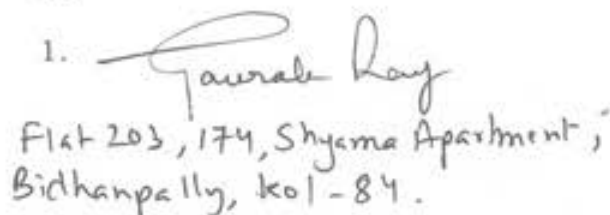 1. Gaurab Ray
Flat 203, 174, Shyama Apartment,
Bidhanpally, Kol-84.